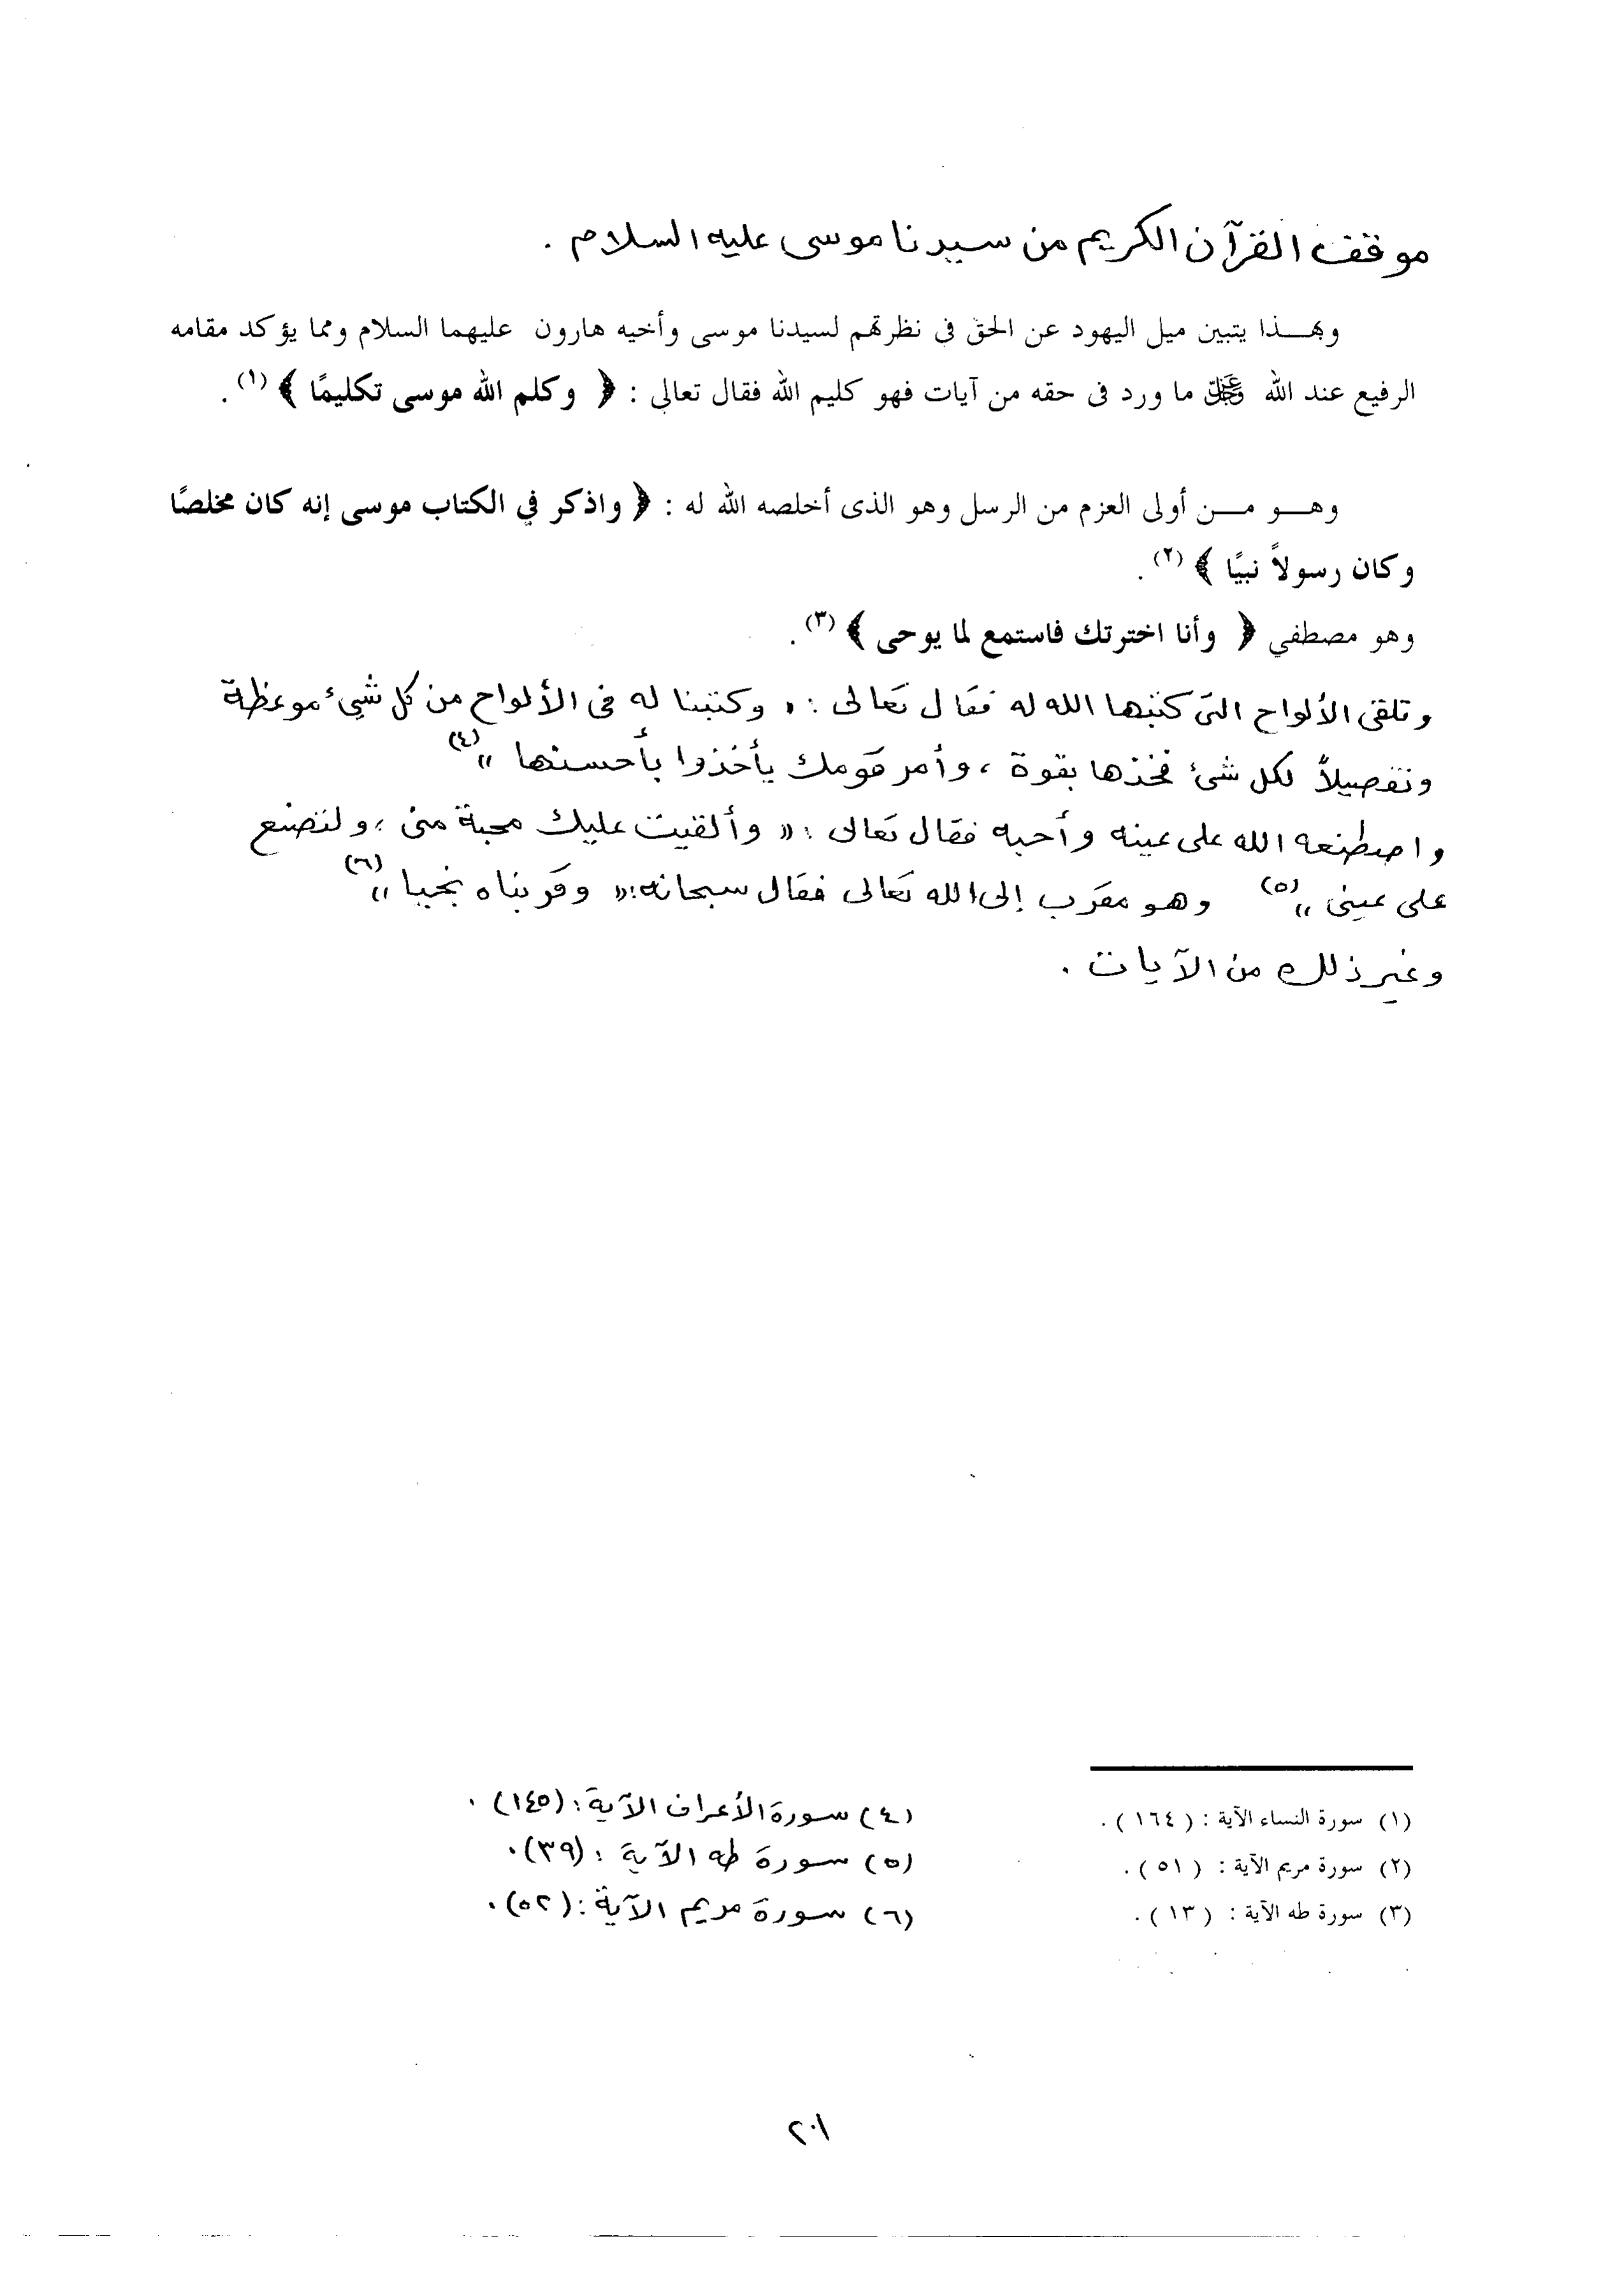 موقف القرآن الكريم من سيدنا موسى عليه السلام .
وبهــذا يتبين ميل اليهود عن الحق فى نظرتهم لسيدنا موسى وأخيه هارون عليهما السلام ومما يؤكد مقامه
الرفيع عند الله عز وجل ما ورد فى حقه من آيات فهو كليم الله فقال تعالى : ﴿ وكلم الله موسى تكليمًا ﴾ (١) .
وهــو مــن أولى العزم من الرسل وهو الذى أخلصه الله له : ﴿ واذكر في الكتاب موسى إنه كان مخلصًا
وكان رسولاً نبيًا ﴾ (٢) .
وهو مصطفي ﴿ وأنا اخترتك فاستمع لما يوحى ﴾ (٣) .
وتلقى الألواح التى كتبها الله له فقال تعالى : " وكتبنا له فى الألواح من كل شيء موعظة
وتفصيلاً لكل شئ فخذها بقوة ، وأمر قومك يأخذوا بأحسنها " (٤)
واصطنعه الله على عينه وأحبه فقال تعالى : " وألقيت عليك محبة منى ؛ ولتصنع
على عينى " (٥) وهو مقرب إلى الله تعالى فقال سبحانه : " وقربناه نجيا " (٦)
وغير ذلك من الآيات .
(١) سورة النساء الآية : ( ١٦٤ ) .
(٢) سورة مريم الآية : ( ٥١ ) .
(٣) سورة طه الآية : ( ١٣ ) .
(٤) سورة الأعراف الآية : (١٤٥) .
(٥) سورة طه الآية : (٣٩) .
(٦) سورة مريم الآية : (٥٢) .
٢٠١